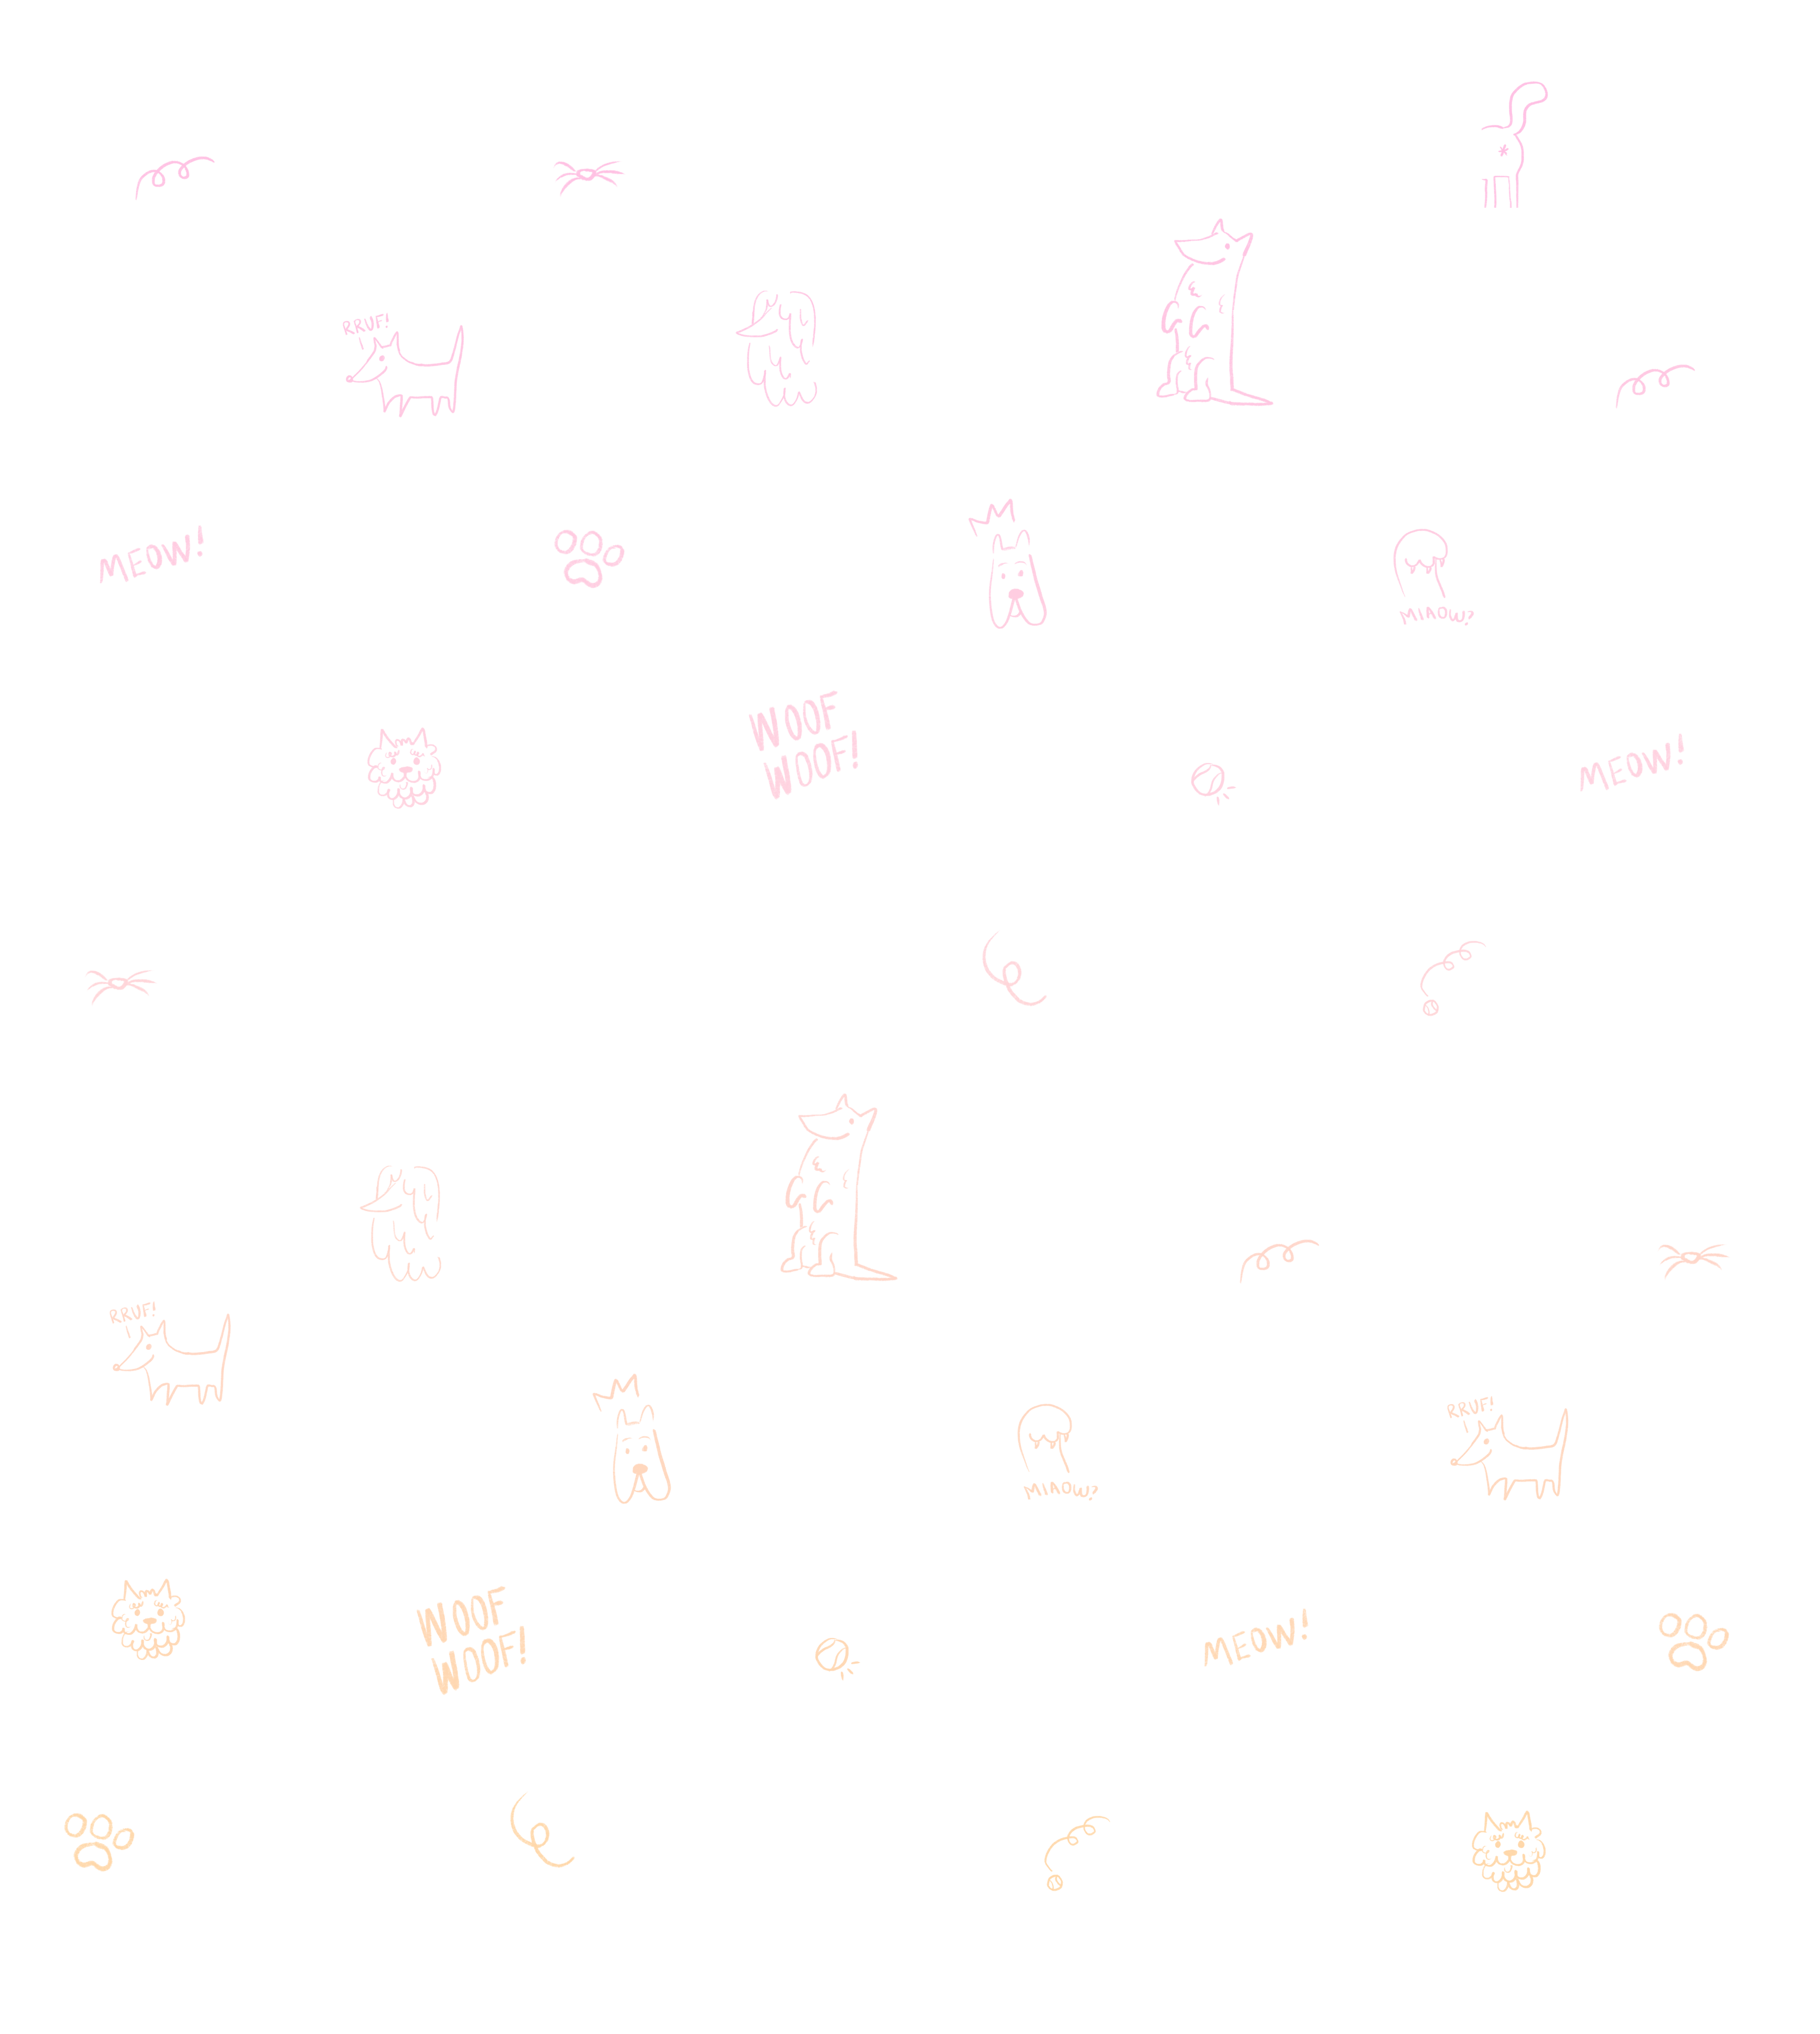 RRUF!
MEOW!
MIAOW?
WOOF
WOOF!
MEOW!
RRUF!
RRUF!
MIAOW?
WOOF
WOOF!
MEOW!